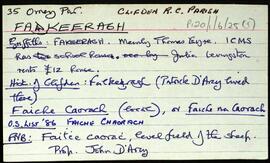 35 Omey Par. CLIFDEN R.C. PARISH
P120/1/6/25(1)
FAKKEERAGH
Griffiths: FAKEERAGH. Mainly Thomas Eyre. ICMS
has school house. Julia Livingston
rents £12 house.
Hist. of Clifden: Fackeeragh (Patrick D'Arcy lived
there)
Faiche Caorach (Gaeil), or Faiche na gCaorach
O.S. LIST '86 FAICHE CHAORACH
FNB: Faitce caorac, level field of the sheep.
Prop. John D'Arcy